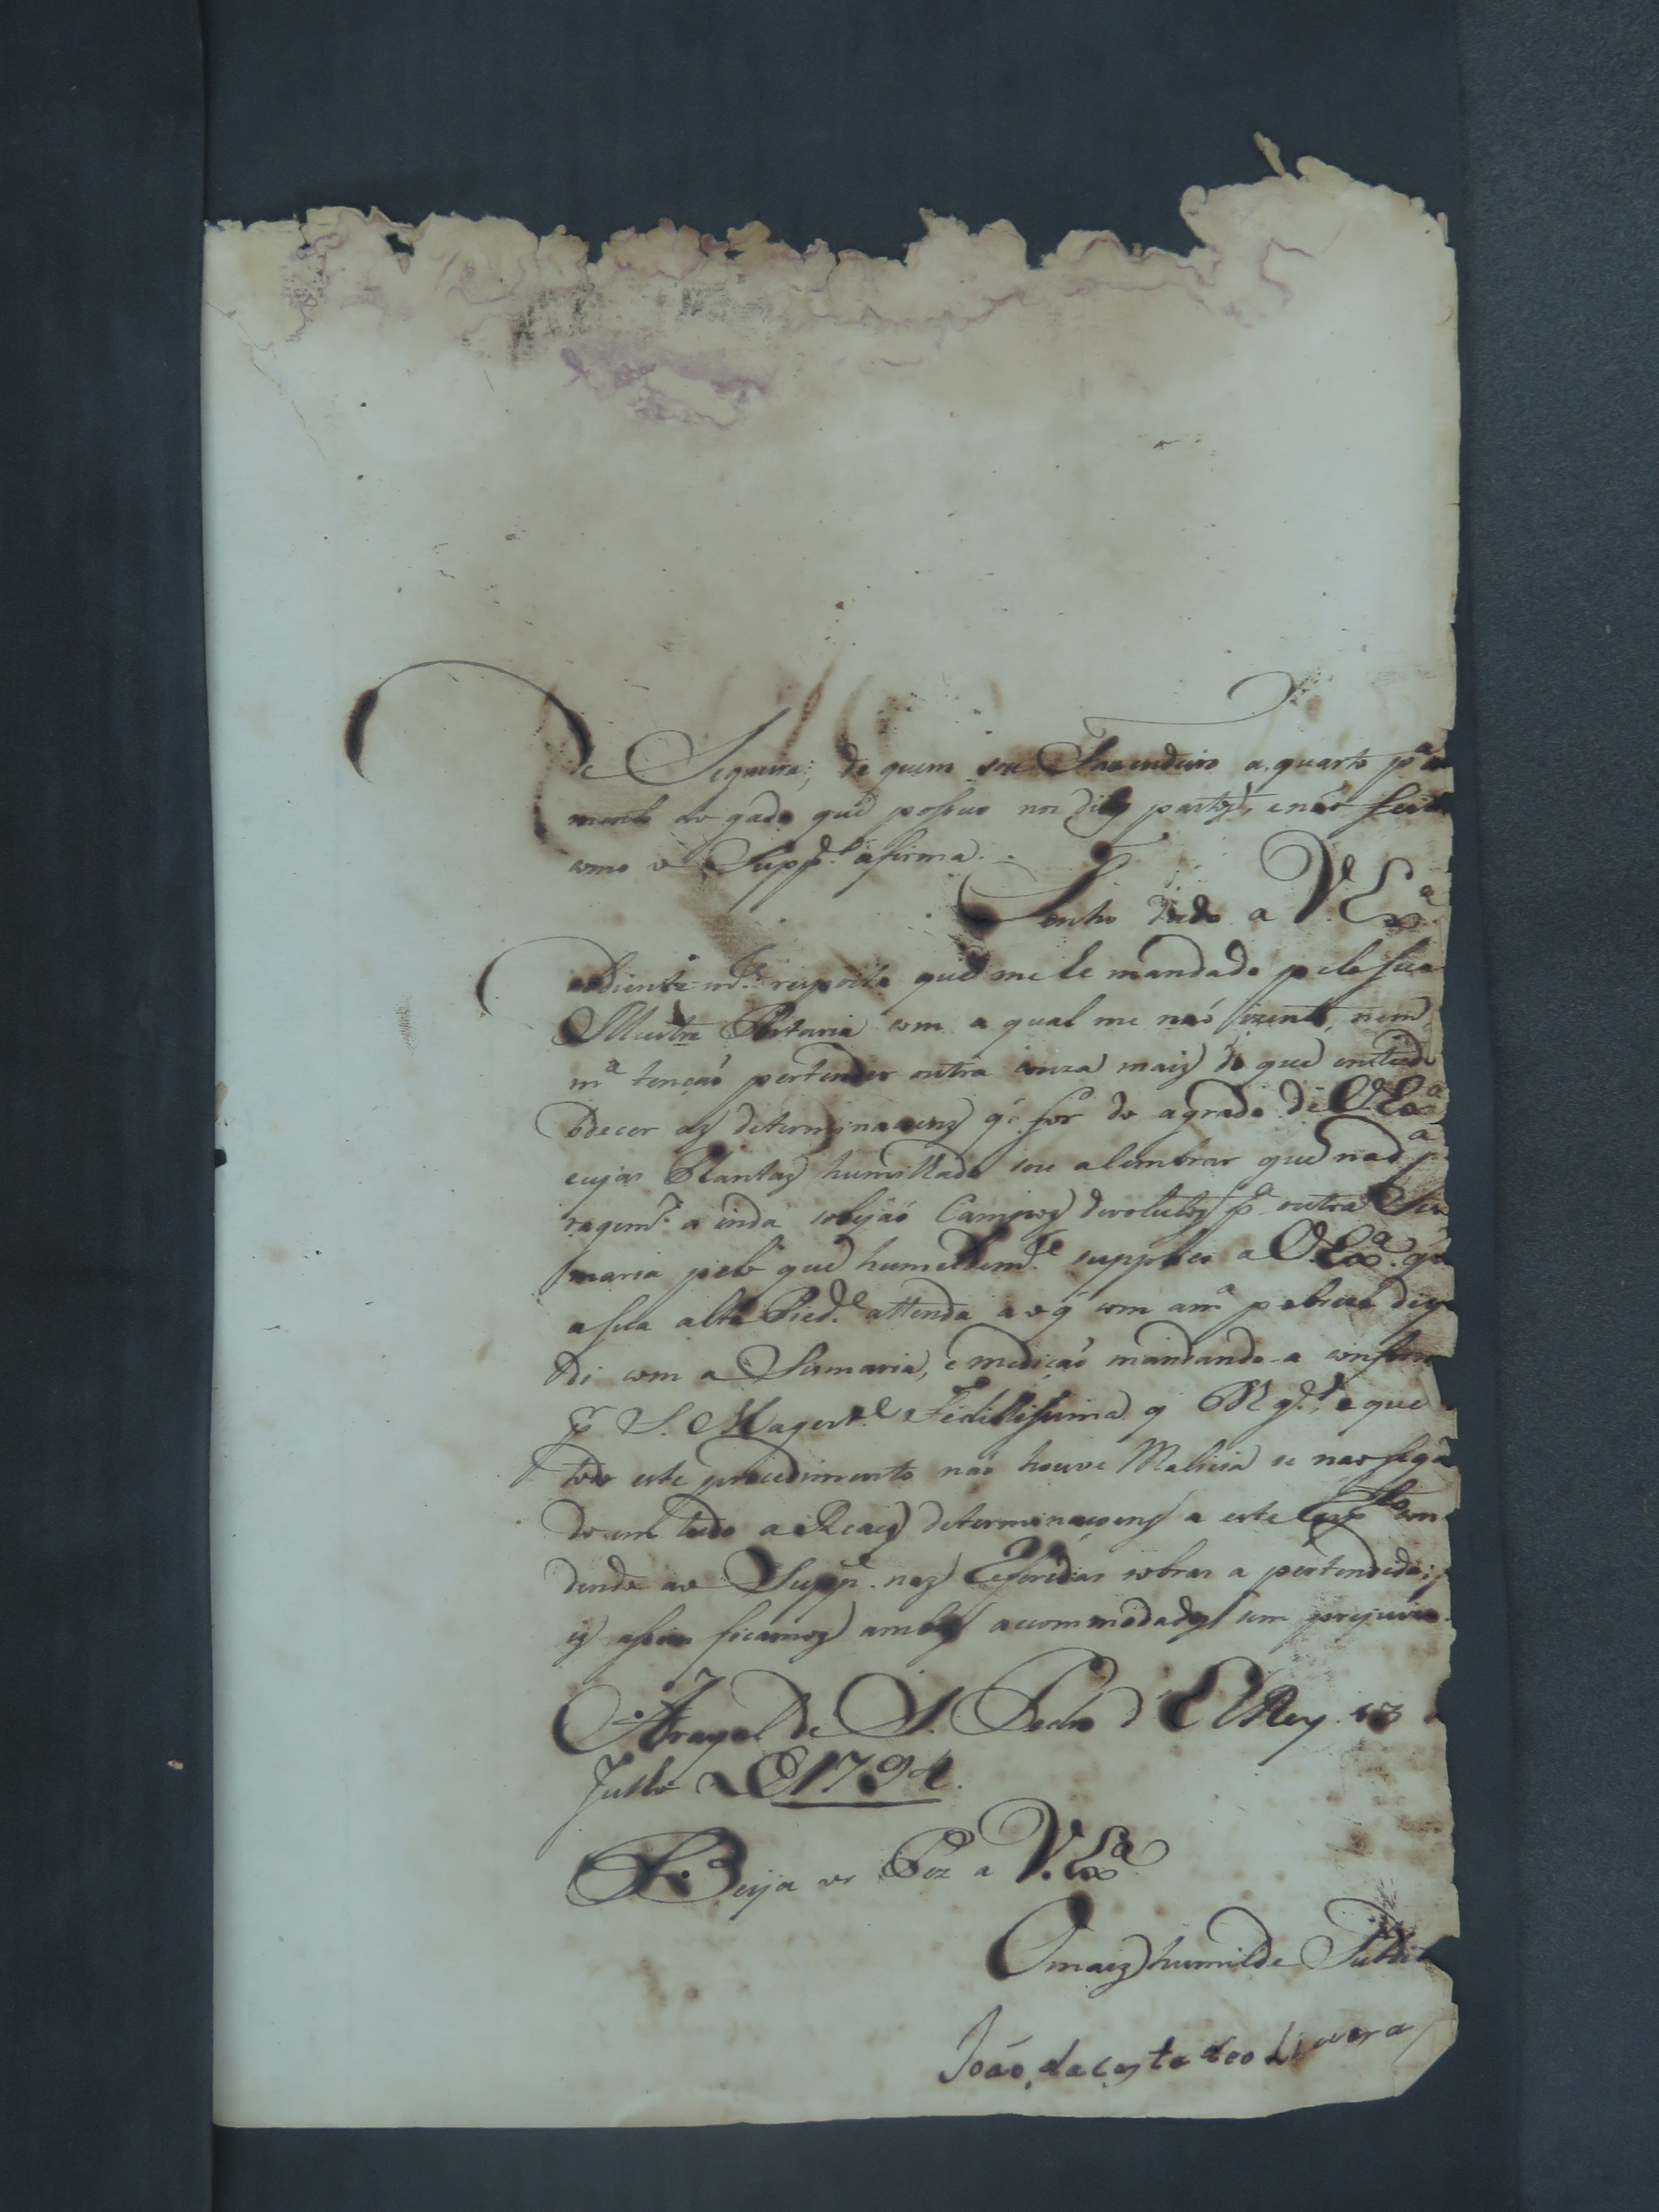 de Sequeira; de quem sou Fazendeiro a quarto p.ª
mento do gado que pofsuo nos ditos partes, e não feit
como o Supp.e afirma.
Tenho dado a V. Exª
obdiente m.te resposta que me he mandado pela sua
Illustre Portaria com a qual me não izento, nem
m.ª tenção pertender outra couza mais do que em tudo
obdecer as determinaçoens q̃ for do agrado de V. Exª
cujas Plantas humilhado sou a lembrar que nad p.ª
ragem.s a inda sobejaõ Campos devolutos p.ª outra Sis
maria pelo que humildem.te supplico a V. Exª. q̃
a sua alta Pied.e attenda ao q̃ com am.ª pobreza dis
di com a Sismaria, e medição mandando-a confirm
p̃ S. Magest.e Fidellissima q̃ D.s g.de, e que
todo este procedimento não houve Malicia se nao segᵃ
do em tudo as Reaes determinaçoens a este resp.to con
dendo ao Supp.e nas Referidas sobras a pertendida;
is afsim ficamos ambos acommodados sem prejuizo.
Arayal de S. Pedro d' El Rey 13 d
Julho D 1794.
B. Beija os Pez a V. Exª
O mais humilde Subdit
João da costa de oLiveira